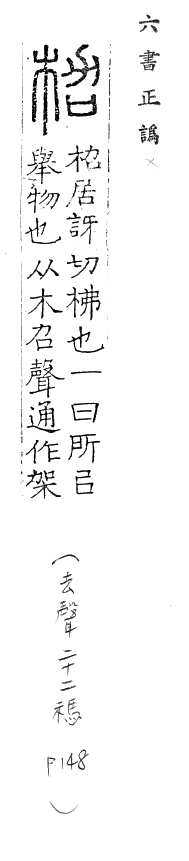 六書正譌
柖
柖居訝切柫也一曰所㠯
舉物也从木召聲通作架
(去聲二十二禡 P.148)